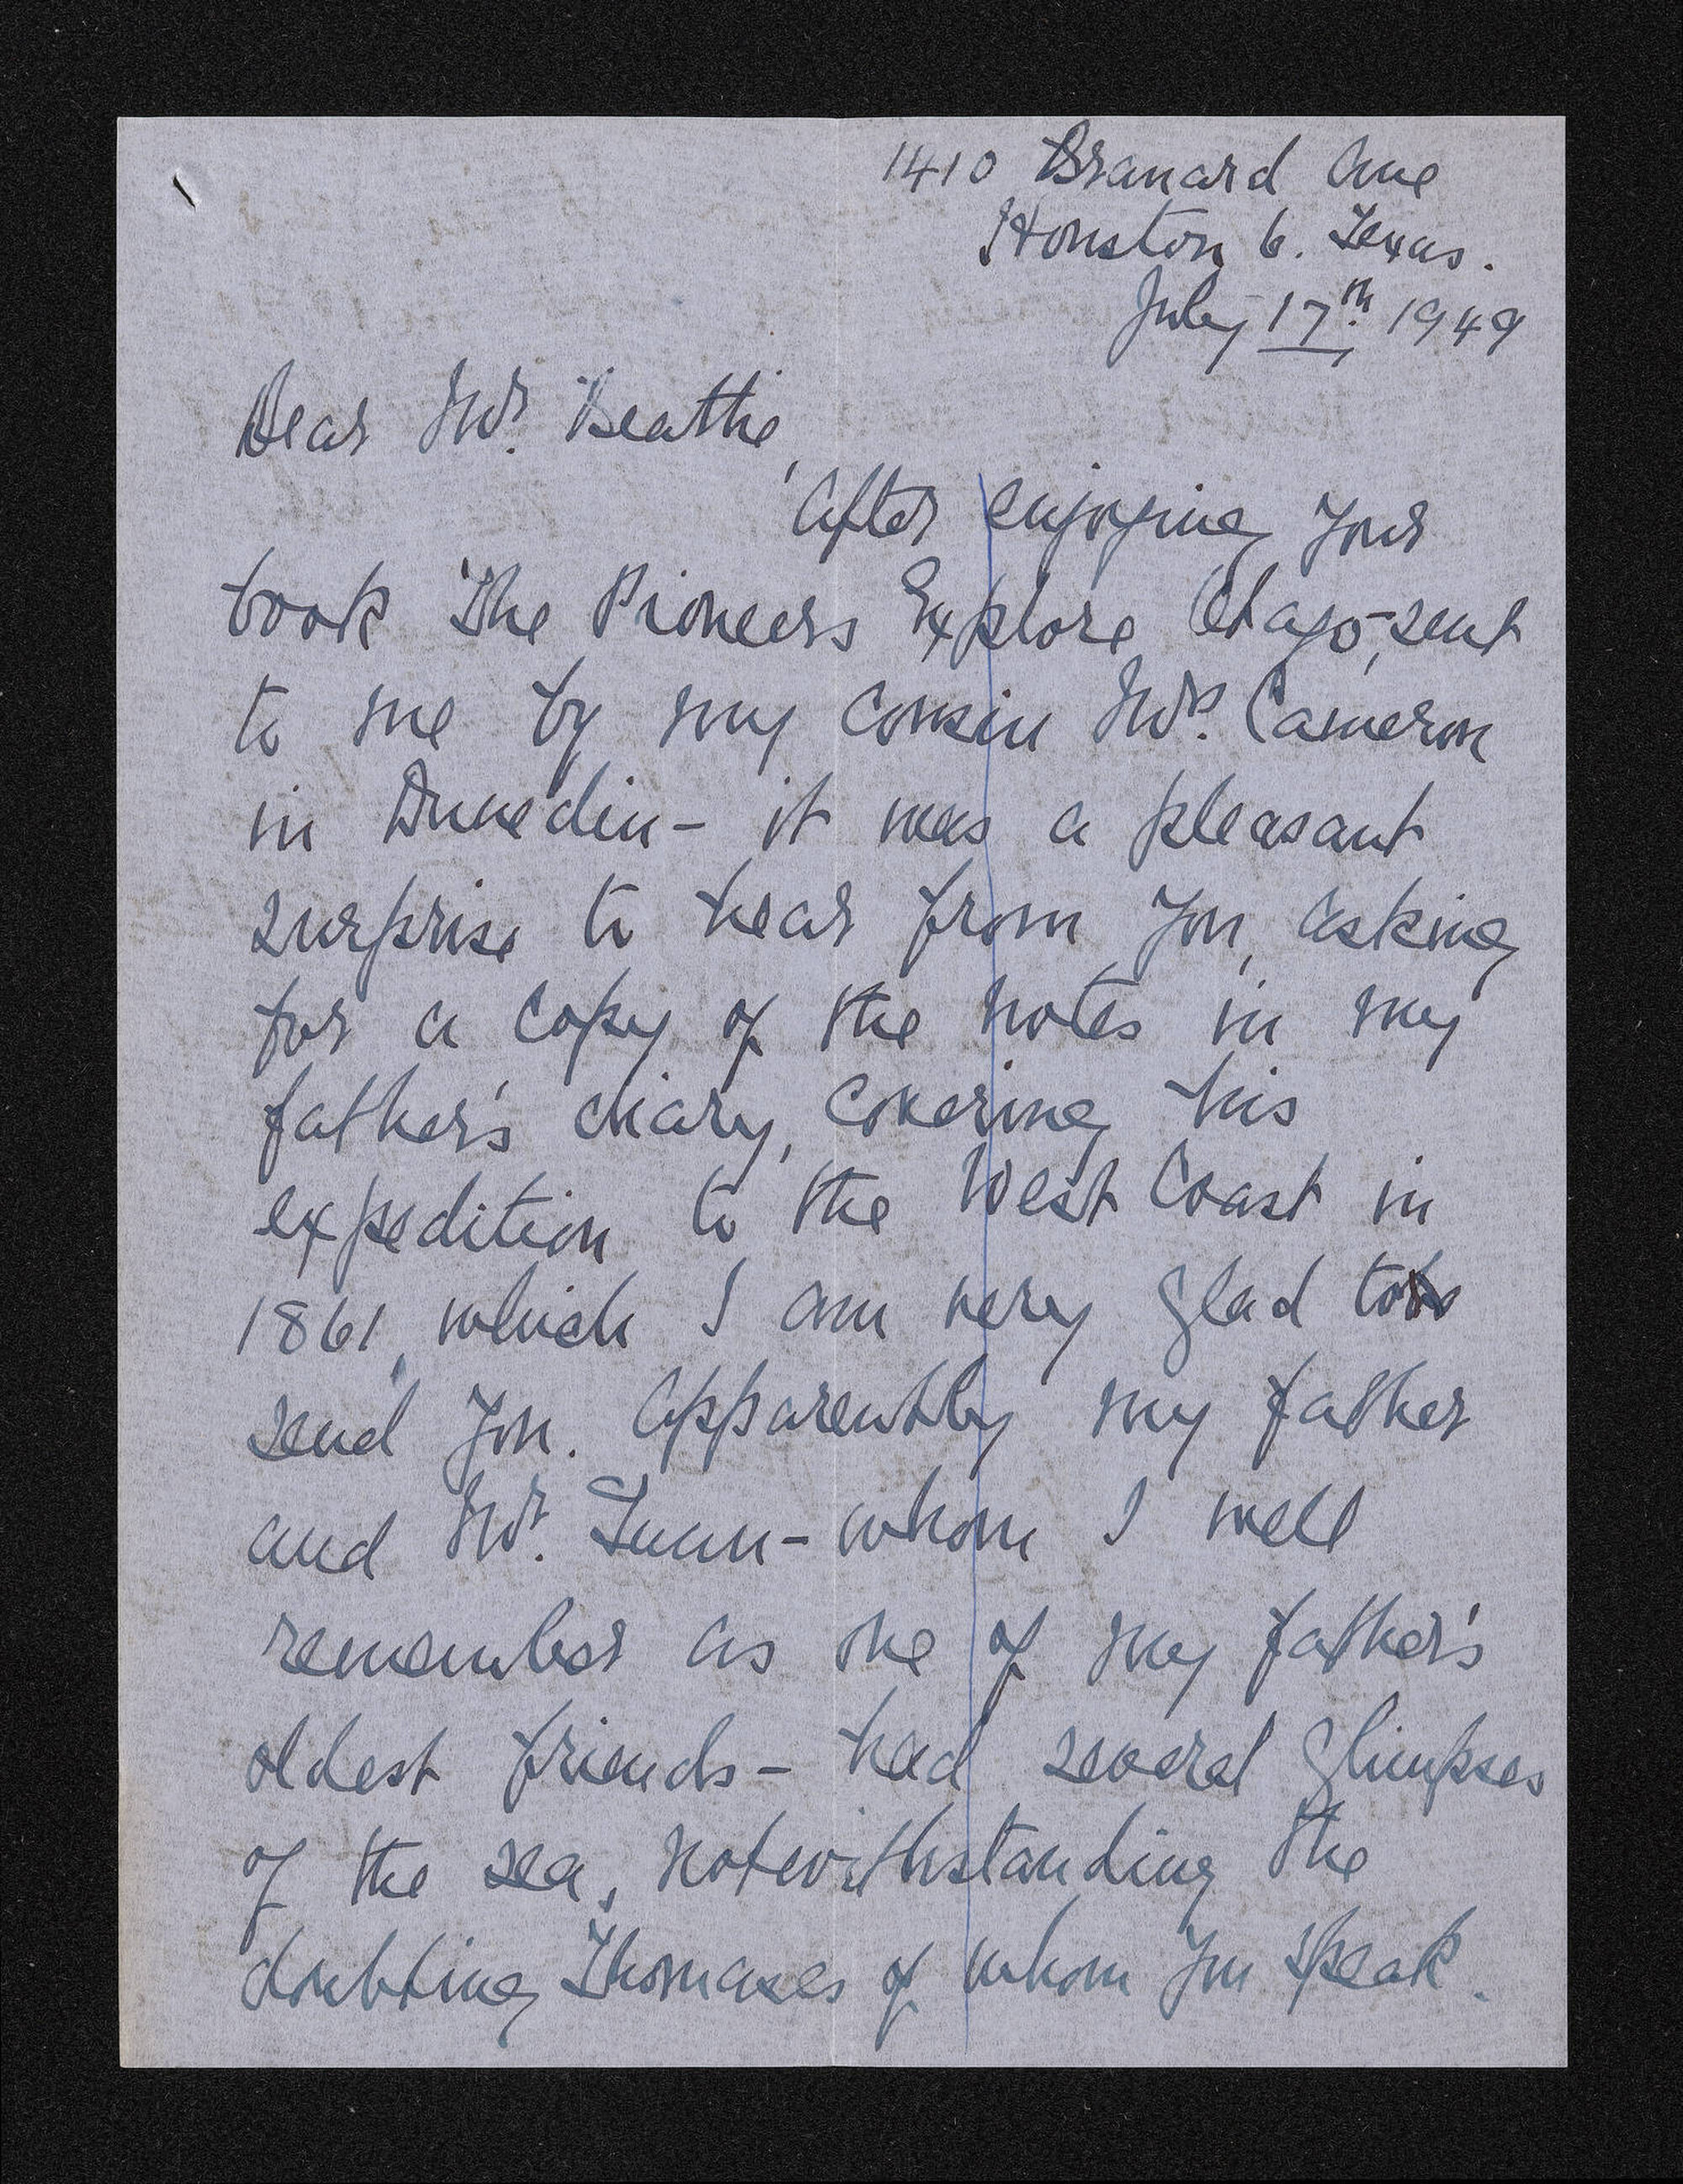 1410 Branard Ave
Houston 6. Texas.
July 17th. 1949
Dear Mr. Beattie,
After enjoying your
book 'The Pioneers Explore Otago', sent
to me by my cousin Mrs. Cameron
in Dunedin - it was a pleasant
surprise to hear from you, asking
for a copy of the notes in my
father's diary, covering his
expedition to the West Coast in
1861, which I am very glad to
send you. Apparently my father
and Mr. - whom I well
remember as one of my father's
oldest friends - had several glimpses
of the sea, notwithstanding the
doubting Thomases of whom you speak.